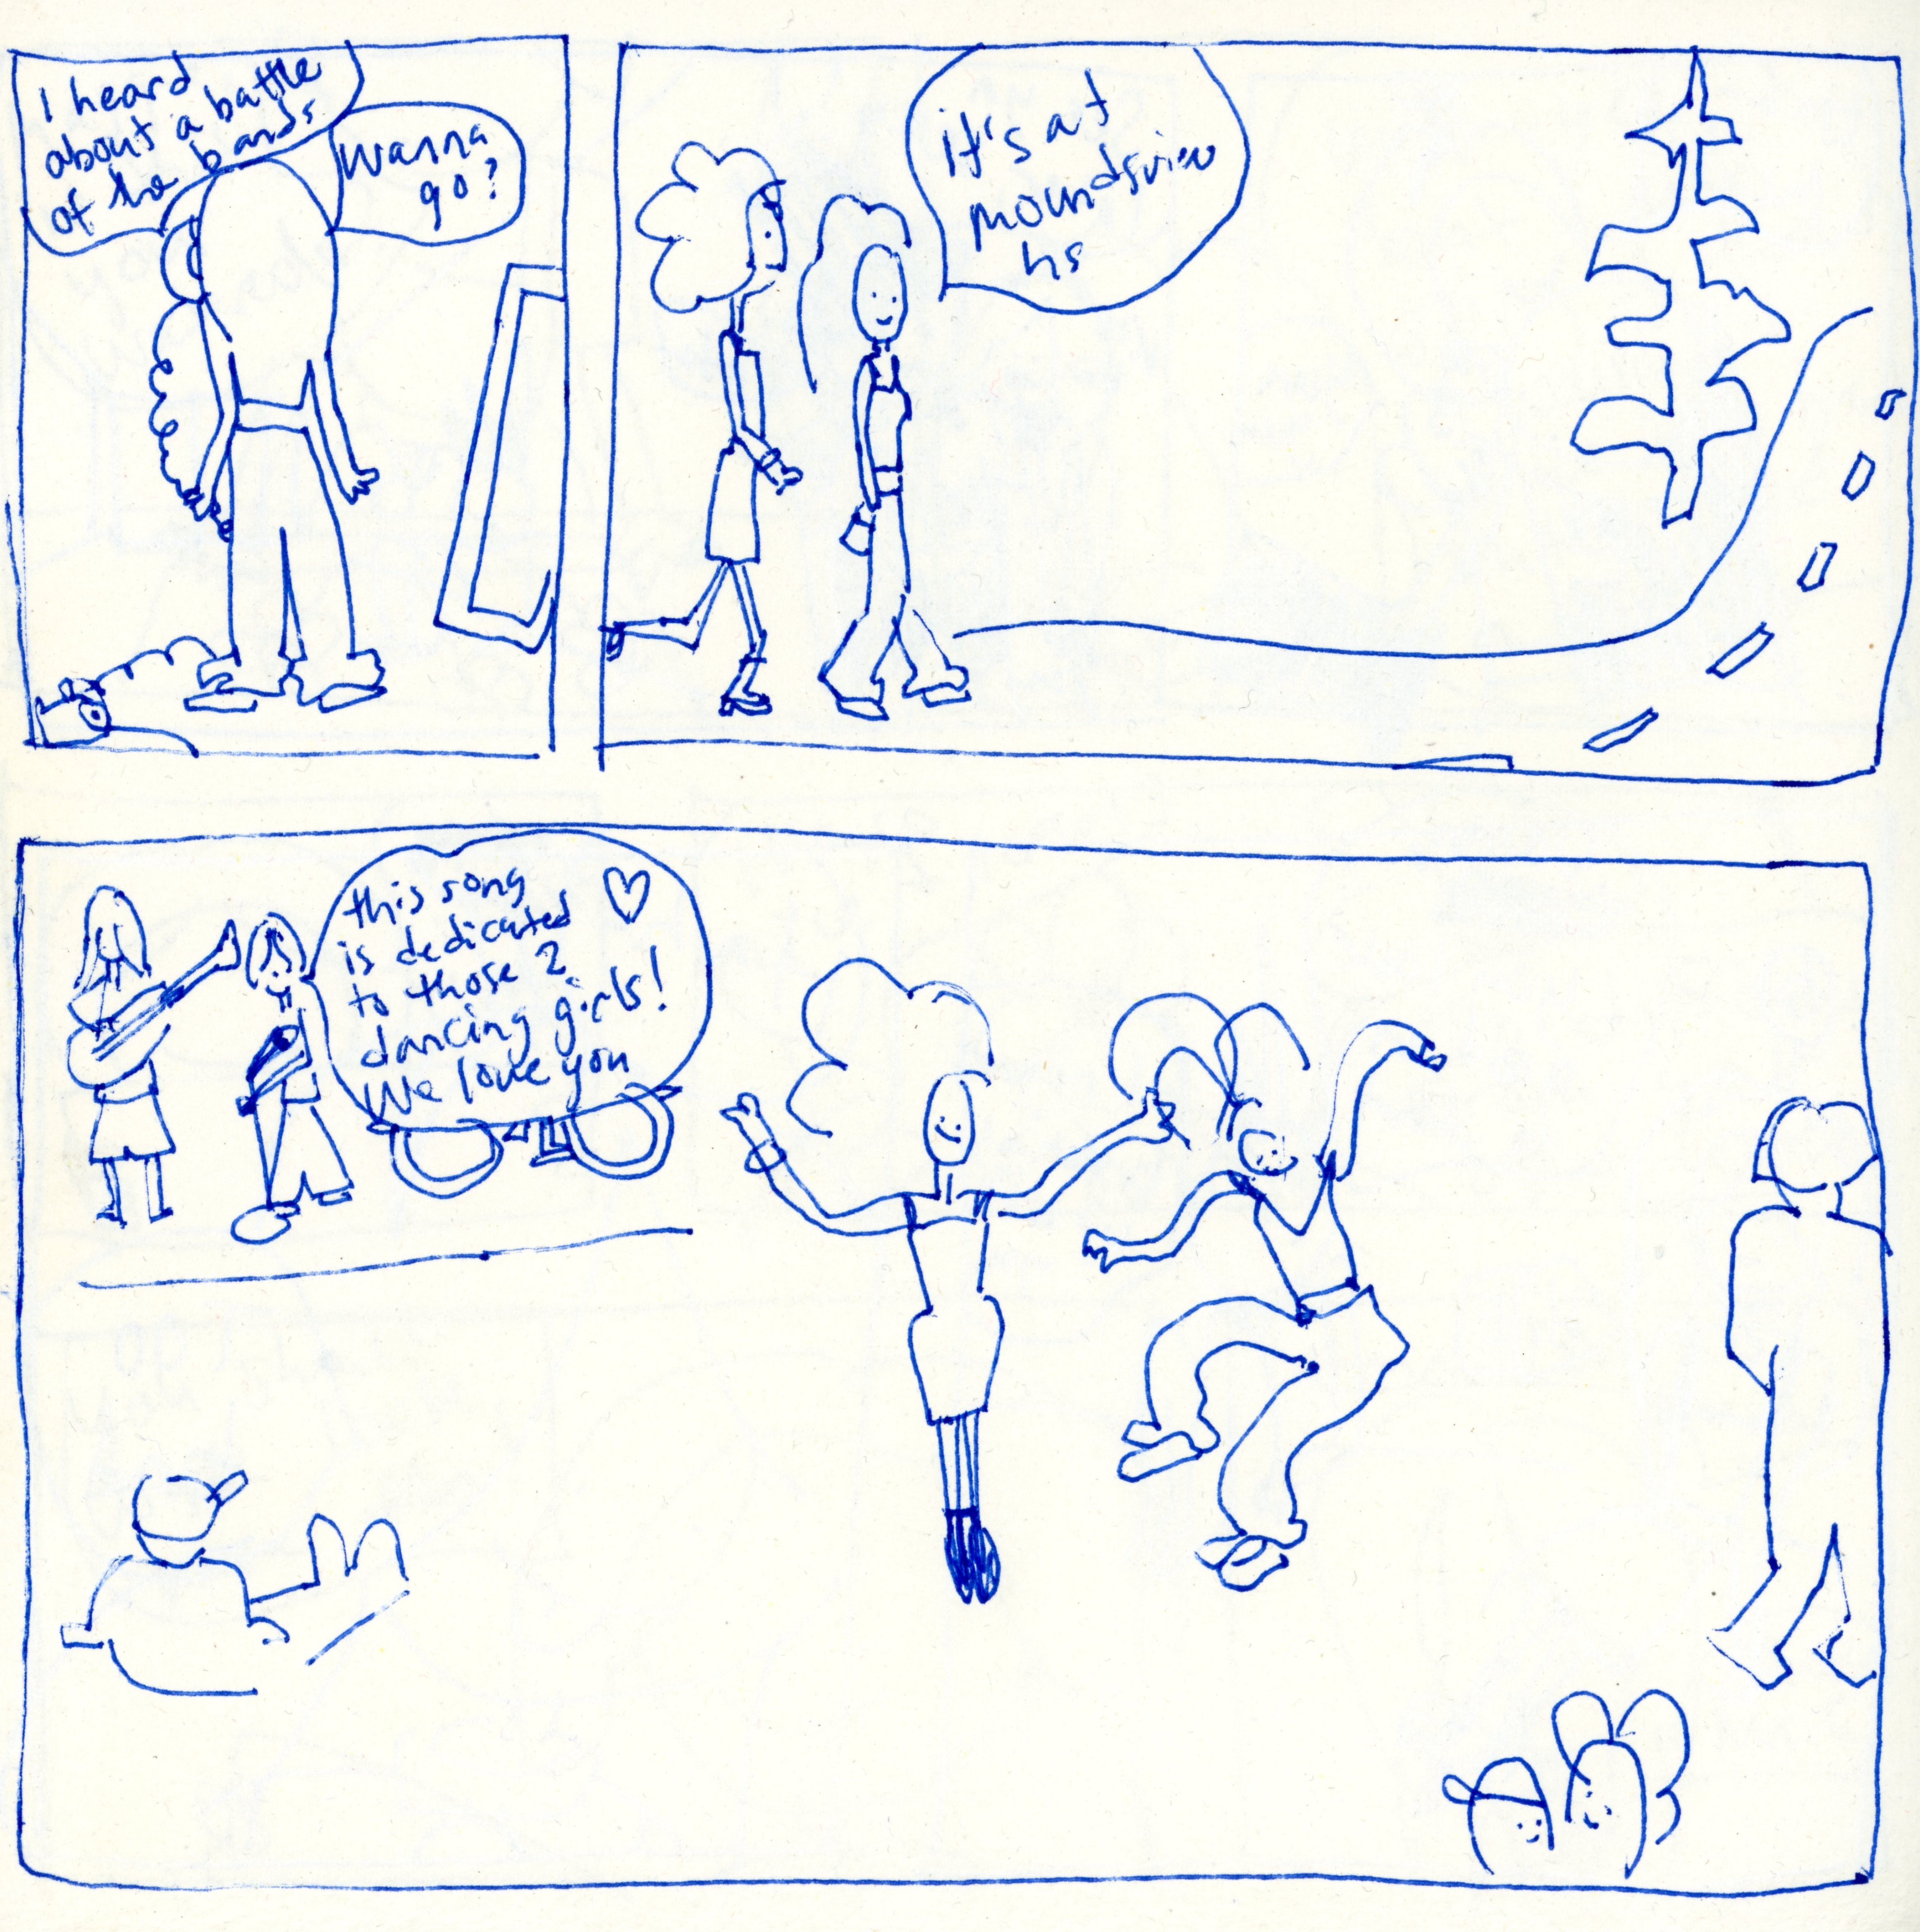 I heard
about a battle
of the bands
Wanna
go?
it's at
moundsview
hs
this song
is dedicated
to those 2
dancing girls!
We love you